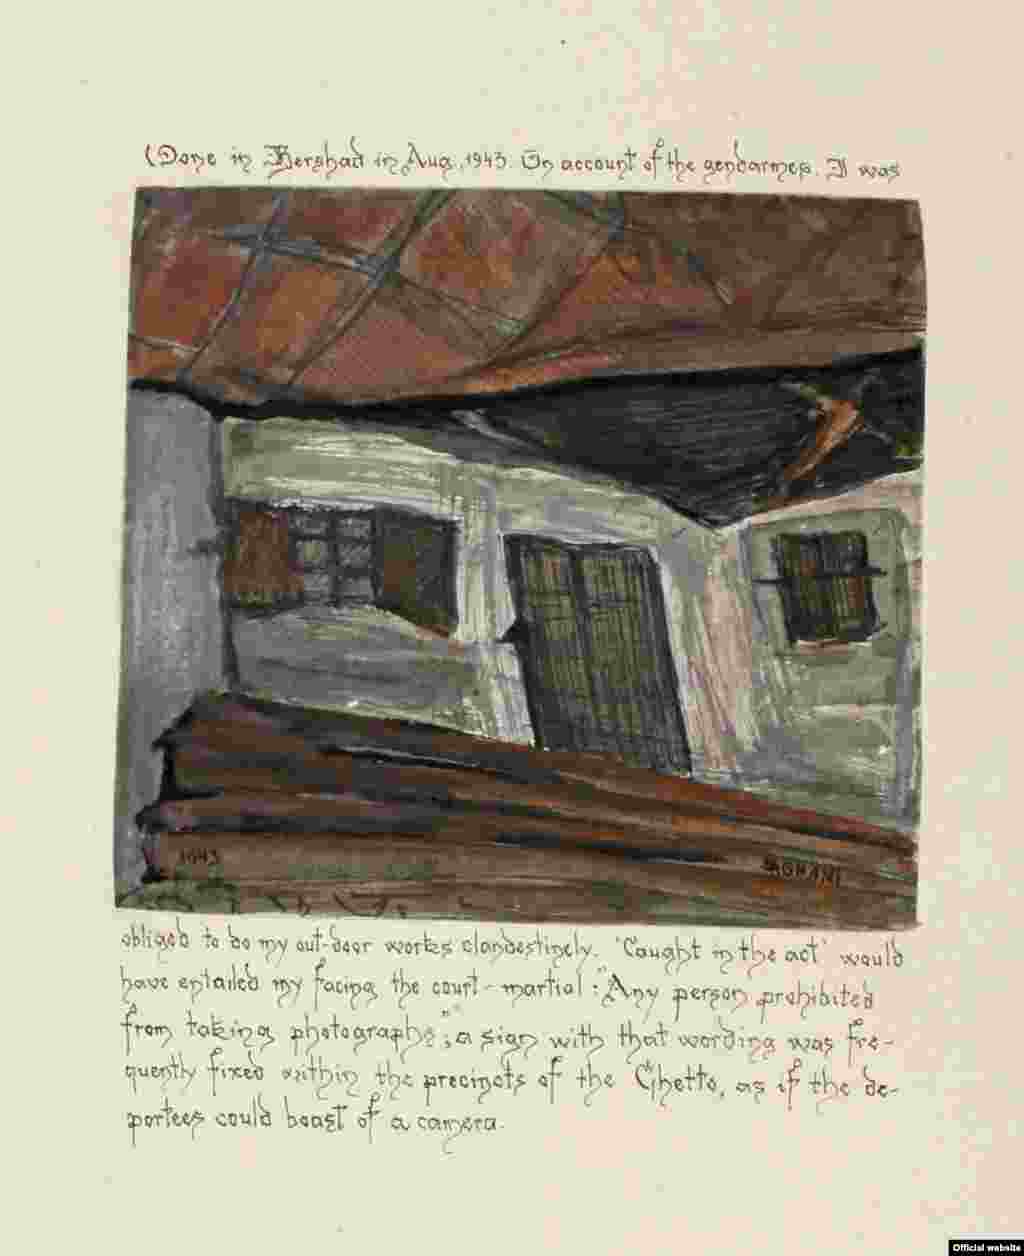 (Done in Bershad in Aug., 1943. On account of the gendarmes, I was
1943
AGHANI
obliged to do my out-door works clandestinely. "Caught in the act" would
have entailed my facing the court-martial: "Any person prohibited
from taking photographs"; a sign with that wording was fre-
quently fixed within the precincts of the Ghetto, as if the de-
portees could boast of a camera.
Official website